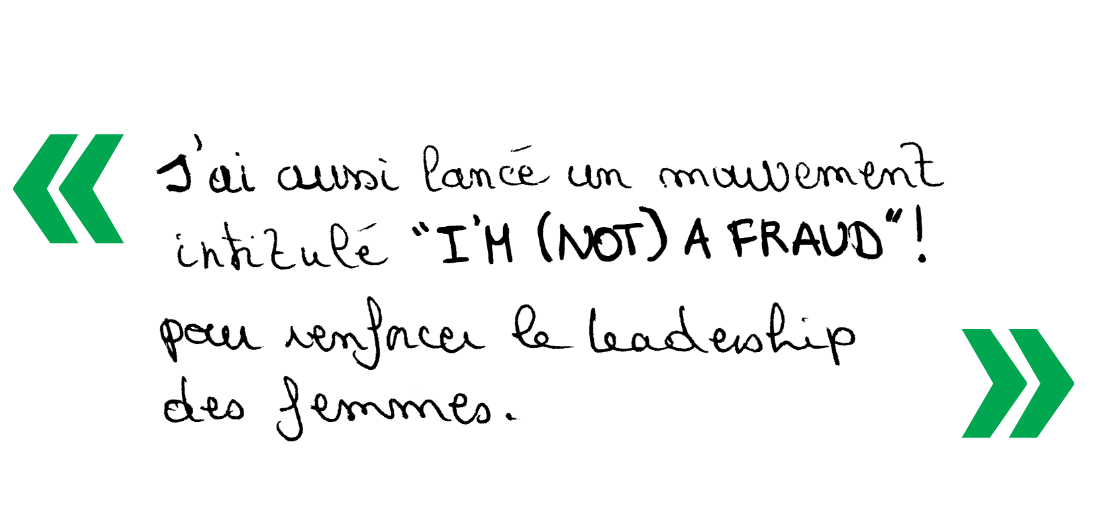 « J'ai aussi lancé un mouvement
intitulé "I'M (NOT) A FRAUD"!
pour renforcer le leadership
des femmes. »